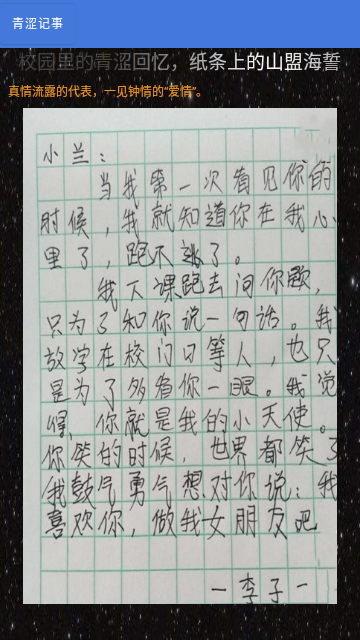 青涩记事
校园里的青涩回忆，纸条上的山盟海誓
真情流露的代表，一见钟情的“爱情”。
小兰：
当我第一次看见你的
时候，我就知道你在我心
里了，跑不了。
我下课跑去问你题，
只为了和你说一句话。我
放学在校门口等人，也只
是为了多看你一眼。我觉
得，你就是我的小天使。
你笑的时候，世界都笑了
我鼓气勇气想对你说：我
喜欢你，做我女朋友吧
－李子－